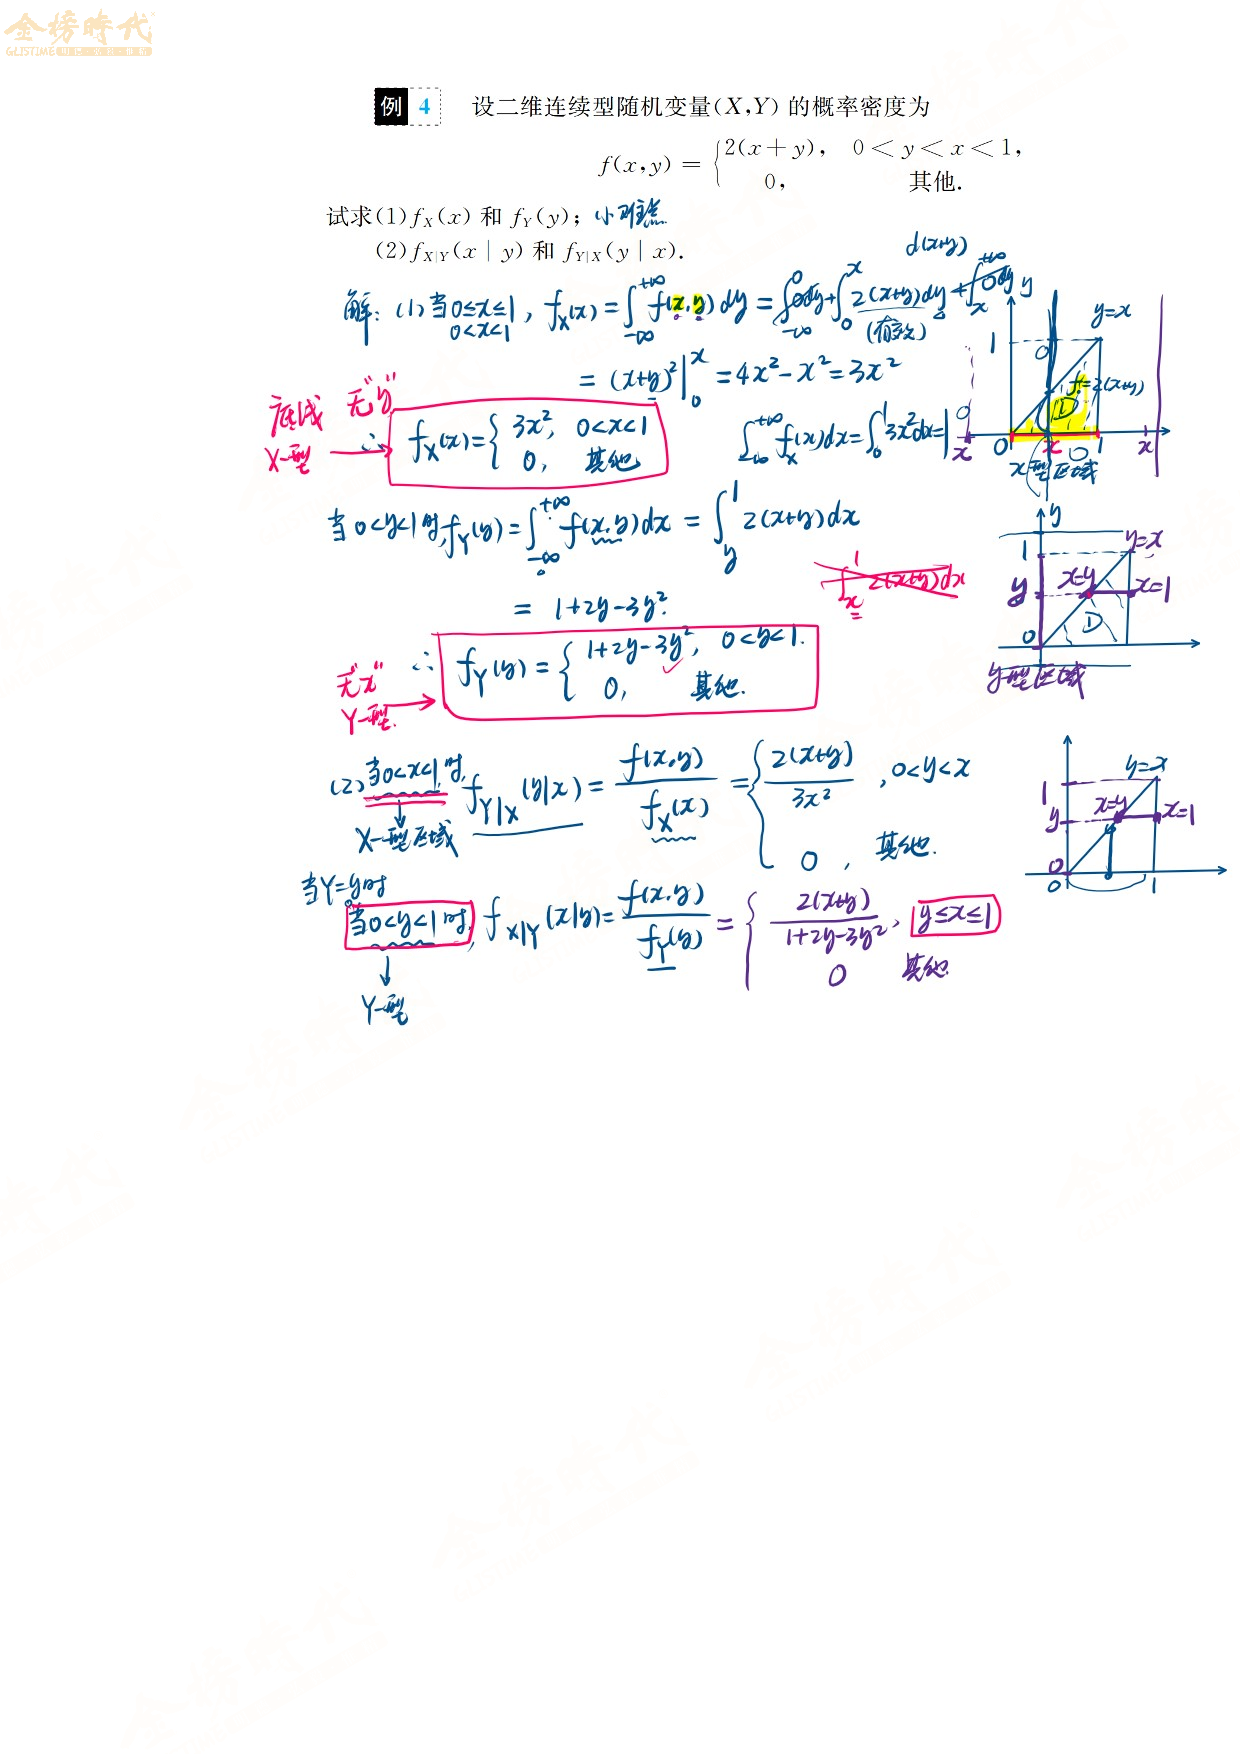 金榜時代
GLISTIME
例 4 设二维连续型随机变量(X,Y) 的概率密度为
f(x,y) = { 2(x+y), 0<y<x<1,
0, 其他.
试求(1) f_X(x) 和 f_Y(y); 小难点
(2) f_{X|Y}(x|y) 和 f_{Y|X}(y|x).
d(x+y)
解: (1) 当0≤x≤1, f_X(x) = ∫_{-∞}^{+∞} f(x,y) dy = ∫_{-∞}^{0} 0dy + ∫_0^x 2(x+y)dy + ∫_x^{+∞} 0dy
0<x<1
(有效)
= (x+y)²|_0^x = 4x²-x² = 3x²
底线 无"y"
X-型 → ∴ f_X(x) = { 3x², 0<x<1
0, 其他
∫_{-∞}^{+∞} f_X(x)dx = ∫_0^1 3x²dx = 1
y
y=x
1
0
f=2(x+y)
D
0
x 0 x 0 1 x
x型区域
当0<y<1时, f_Y(y) = ∫_{-∞}^{+∞} f(x,y)dx = ∫_y^1 2(x+y)dx
∫_x^1 2(x+y)dx
= 1+2y-3y².
无"x"
Y-型. → ∴ f_Y(y) = { 1+2y-3y², 0<y<1.
0, 其他.
y
y=x
1
y x=y x=1
D
0
y型区域
(2) 当0<x<1时, f_{Y|X}(y|x) = f(x,y)/f_X(x) = { 2(x+y)/3x², 0<y<x
0, 其他.
X-型区域
y=x
1
y x=y x=1
0
0 1
当Y=y时
当0<y<1时, f_{X|Y}(x|y) = f(x,y)/f_Y(y) = { 2(x+y)/1+2y-3y², y≤x≤1
0 其他.
Y-型